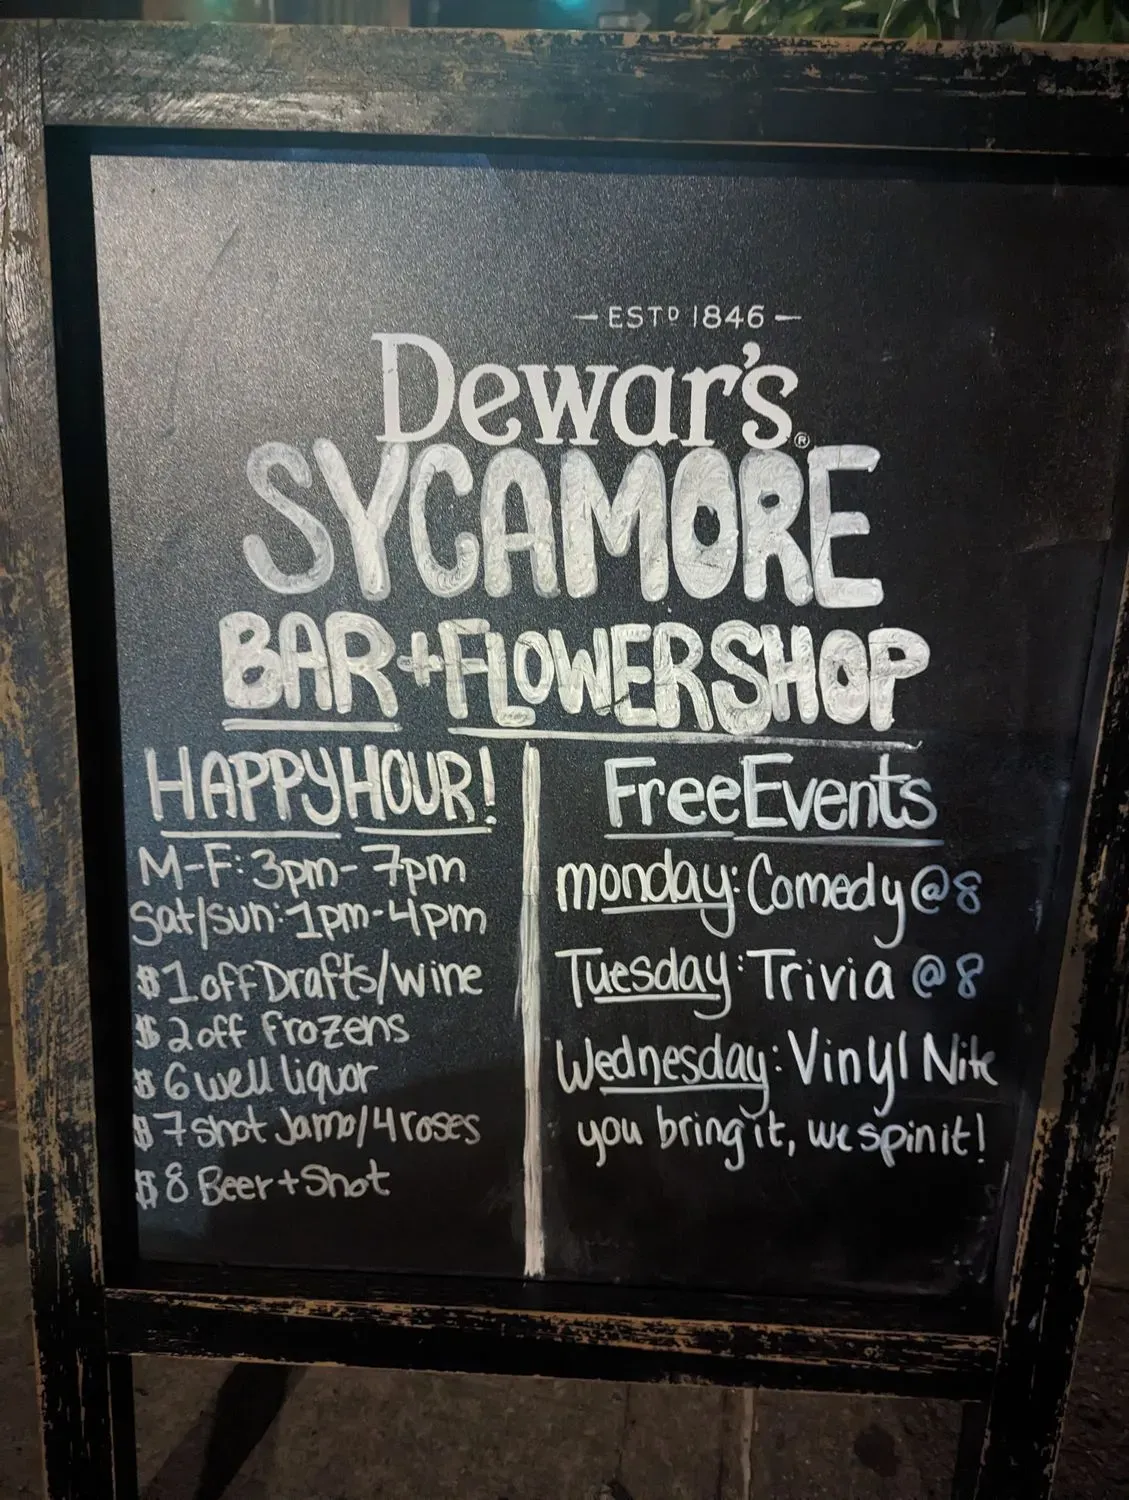 ESTD 1846
Dewar's®
SYCAMORE
BAR + FLOWERSHOP
HAPPY HOUR!
M-F: 3pm-7pm
Sat/sun: 1pm-4pm
$1 off Drafts/wine
$2 off Frozens
$6 well liquor
$7 shot Jamo/4 roses
$8 Beer + Shot
Free Events
monday: Comedy @ 8
Tuesday: Trivia @ 8
Wednesday: Vinyl Nite
you bring it, we spin it!